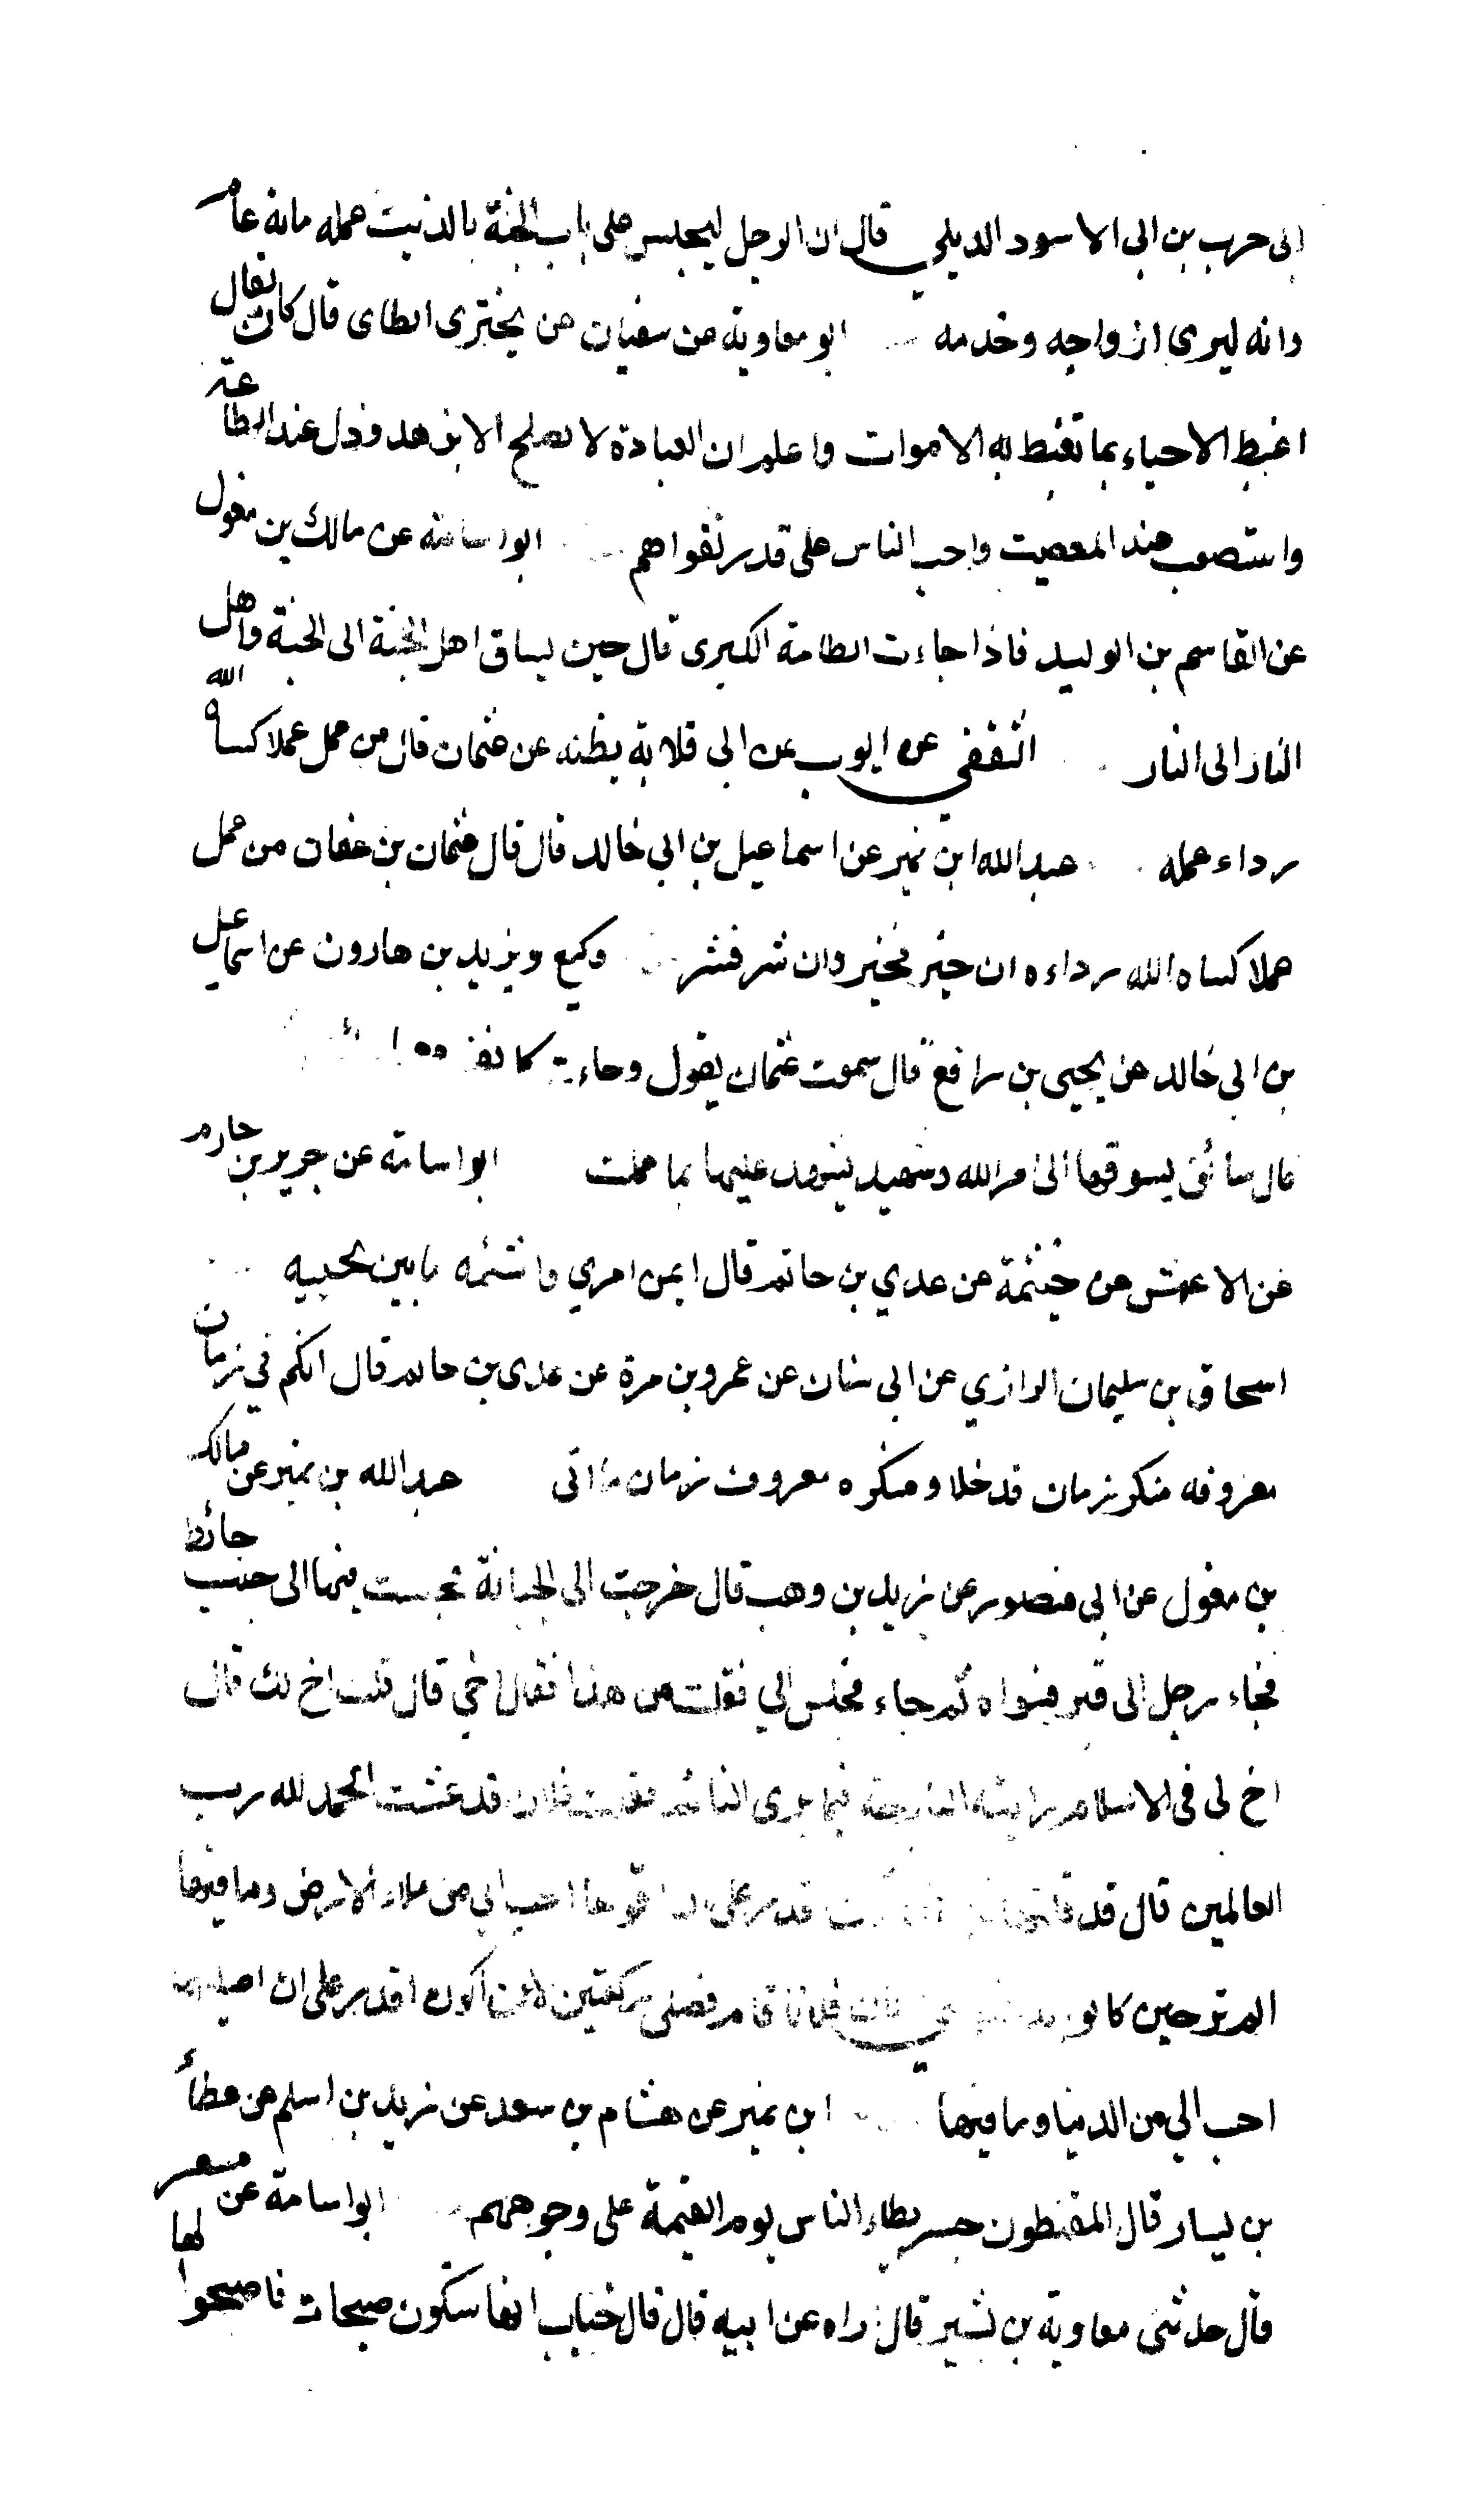 ابى حرب بن ابى الاسود الديلي قال ان الرجل ليجلس على باب الجنة بالذنب عمله مائة عام
وانه ليرى ازواجه وخدمه ابو معاوية عن سفيان عن بختري الطاى قال كان يقال
اغبط الاحياء بما تغبط به الاموات واعلم ان العبادة لا تصلح الا بزهد وذل عند الطاعة
واستصعب عند المعصيت واحب الناس على قدر تقواهم ابو اسامة عن مالك بن مغول
عن القاسم بن الوليد فاذا جاءت الطامة الكبرى قال حين يساق اهل الجنة الى الجنة واهل
النار الى النار الثقفي عن ايوب عن ابى قلابة يظنه عن عثمان قال من عمل عملا كساه الله
رداء عمله عبد الله ابن نمير عن اسماعيل بن ابي خالد قال قال عثمان بن عفان من عمل
عملا كساه الله رداءه ان خير فخير وان شر فشر وكيع ويزيد بن هارون عن اسماعيل
بن ابى خالد عن يحيى بن رافع قال سمعت عثمان يقول وجاءت كل نفس
قال سائق يسوقها الى امر الله وشهيد يشهد عليها بما عملت ابو اسامة عن جرير بن حازم
عن الاعمش عن خيثمة عن عدي بن حاتم قال ايمن امري واشئمه ما بين لحييه
اسحاق بن سليمان الرازي عن ابى سنان عن عمرو بن مرة عن عدى بن حاتم قال انكم في زمان
معروفه منكر زمان قد خلا ومنكره معروف زمان ما اتى عبد الله بن نمير عن مالك
بن مغول عن ابى منصور عن زيد بن وهب قال خرجت الى الجبانة فجلست فيها الى جنب حائط
فجاء رجل الى قبر فسواه ثم جاء فجلس الي فقلت من هذا فقال اخي قال قلت اخ لك قال
اخ لى فى الاسلام رايته البارحة فيما يرى النائم فقلت فلان قد عشت الحمد لله رب
العالمين قال قد قلتها قدر على ان اقولها احب الي من ملاء الارض وما فيها
الم تر حين كانوا فان فلانا قام فصلى ركعتين لان اكون اقدر على ان اصليهما
احب الي من الدنيا وما فيها ابن نمير عن هشام بن سعد عن زيد بن اسلم عن عطاء
بن يسار قال المقنطون جسر يطاء الناس يوم القيمة على وجوههم ابو اسامة عن مسعر
قال حدثنى معاوية بن بشير قال اراه عن ابيه قال قال خباب انها ستكون صيحات فاصيخوا لها